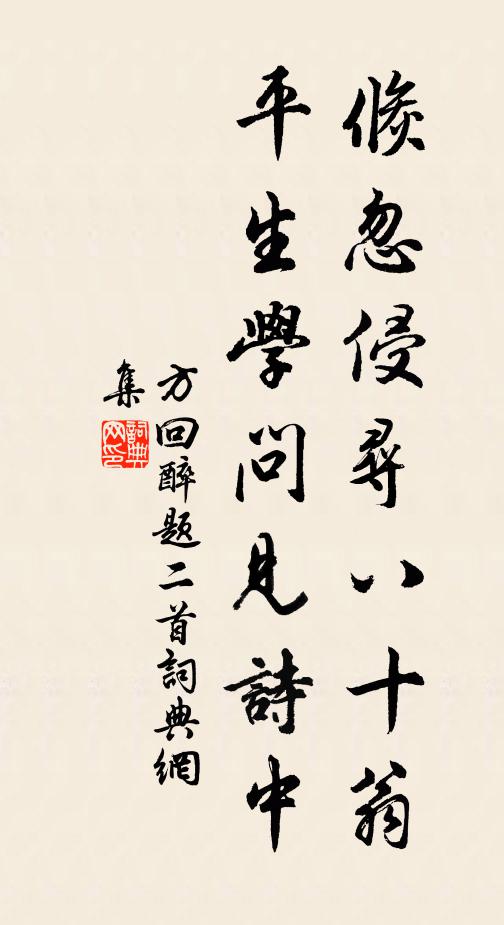 倏忽侵尋八十翁
平生學問見詩中
方回醉題二首詞典網
集
詞典網印